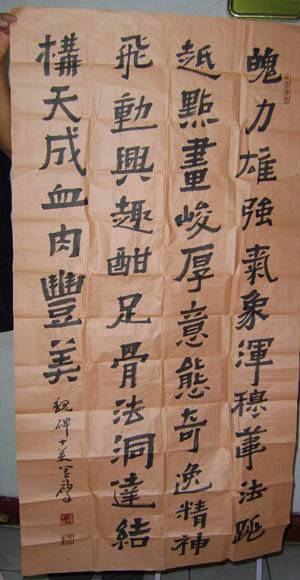 魄力雄強氣象渾穆筆法跳
越點畫峻厚意態奇逸精神
飛動興趣酣足骨法洞達結
構天成血肉豐美
魏碑十美